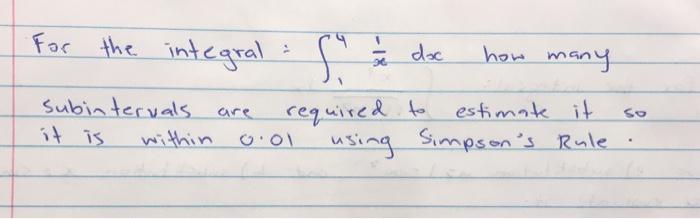 For the integral : ∫₁⁴ 1/x dx how many
subintervals are required to estimate it so
it is within 0.01 using Simpson's Rule .